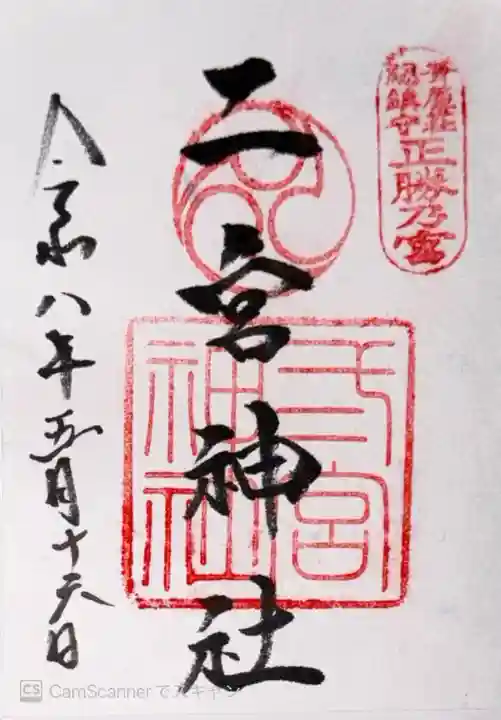 正勝乃宮
二宮神社
弍宮
神社
令和八年五月十六日
CS CamScanner でスキャン